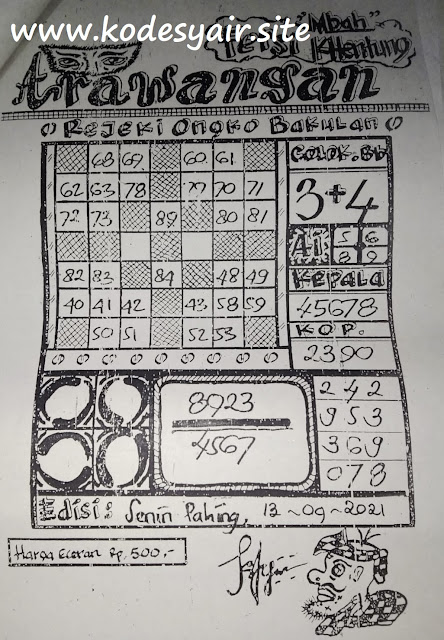 www.kodesyair.site
"Mbah"
Versi KHentung
Arawangan
Rejeki Ongko Bakulan
68 69 60 61
62 63 78 77 70 71
72 73 89 80 81
82 83 84 48 49
40 41 42 43 58 59
50 51 52 53
COLOK. BB
3+4
Ai 5 6
8 9
KEPALA
45678
KOP.
2390
8923
4567
242
953
369
078
Edisi: Senin Pahing, 13-09-2021
Harga Eceran Rp. 500,-